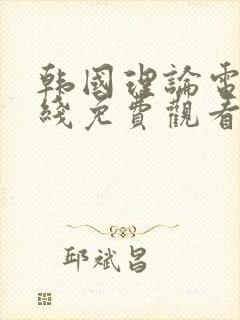 韩國理論電
綫免費觀看
邱斌昌